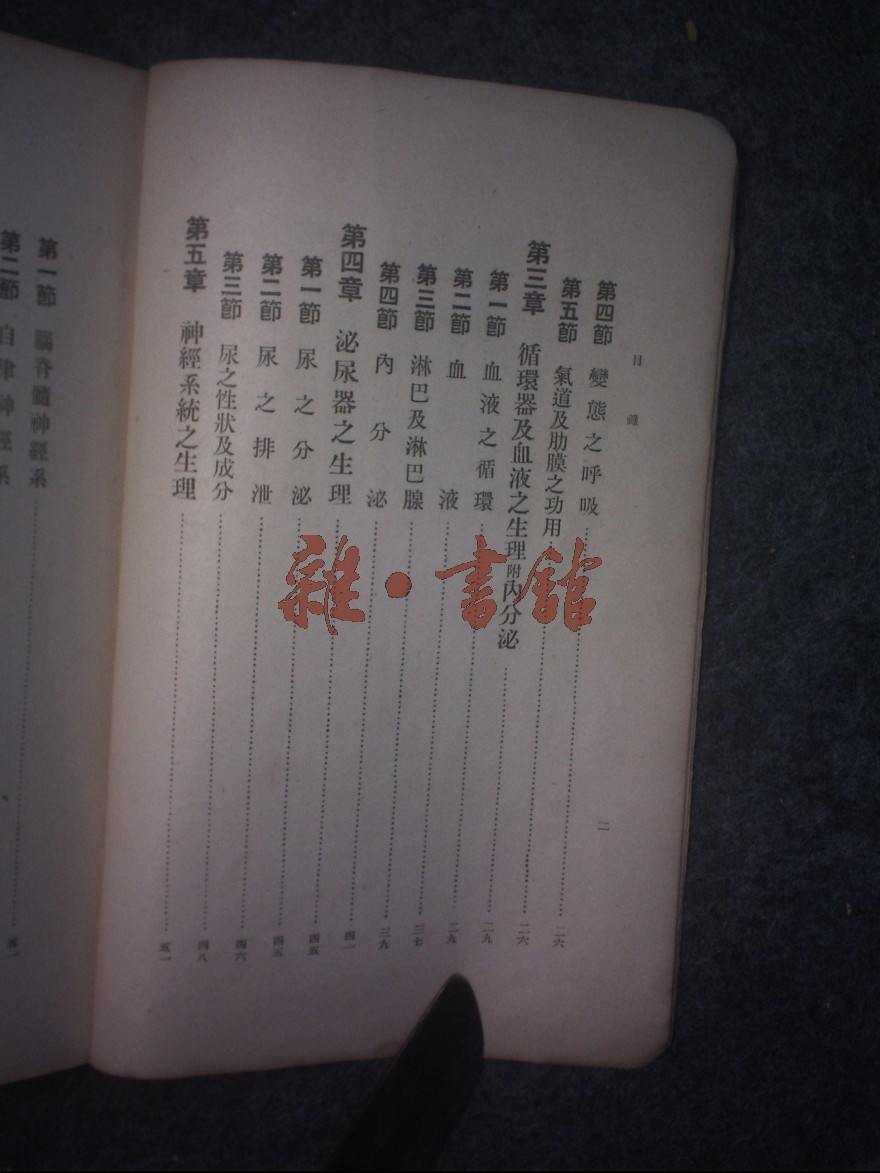 目錄 二
第四節 變態之呼吸……二六
第五節 氣道及肋膜之功用……二六
第三章 循環器及血液之生理附內分泌……二九
第一節 血液之循環……二九
第二節 血液……三七
第三節 淋巴及淋巴腺……三九
第四節 內分泌……四一
第四章 泌尿器之生理……四五
第一節 尿之分泌……四五
第二節 尿之排泄……四六
第三節 尿之性狀及成分……四八
第五章 神經系統之生理……五一
第一節 腦脊髓神經系……五一
第二節 自律神經系
雜·書館